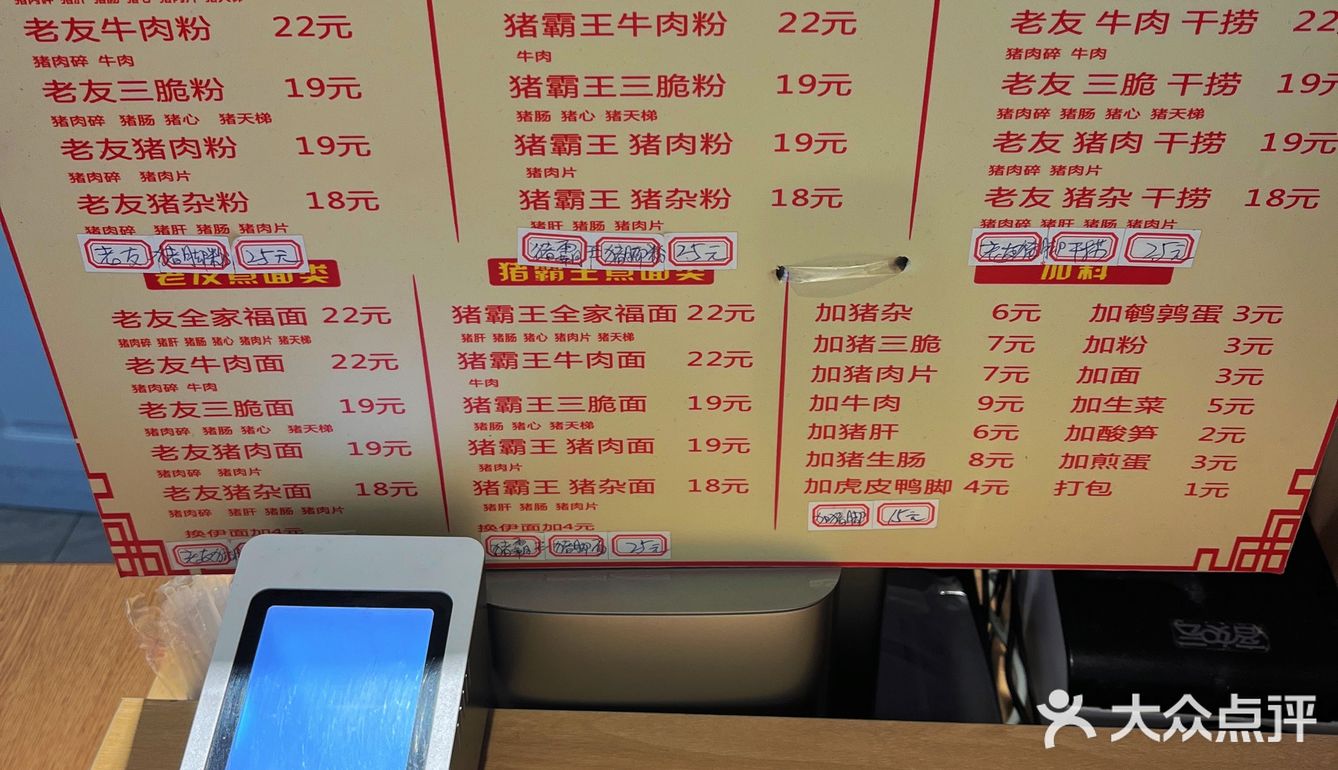 老友牛肉粉 22元
猪肉碎 牛肉
老友三脆粉 19元
猪肉碎 猪肠 猪心 猪天梯
老友猪肉粉 19元
猪肉碎 猪肉片
老友猪杂粉 18元
猪肉碎 猪肝 猪肠 猪肉片
老友猪脚粉 25元
猪霸王牛肉粉 22元
牛肉
猪霸王三脆粉 19元
猪肠 猪心 猪天梯
猪霸王 猪肉粉 19元
猪肉片
猪霸王 猪杂粉 18元
猪肝 猪肠 猪肉片
猪霸王猪脚粉 25元
老友 牛肉 干捞 22
猪肉碎 牛肉
老友 三脆 干捞 19元
猪肉碎 猪肠 猪心 猪天梯
老友 猪肉 干捞 19元
猪肉碎 猪肉片
老友 猪杂 干捞 18元
猪肉碎 猪肝 猪肠 猪肉片
老友猪脚干捞 25元
老友点面类
老友全家福面 22元
猪肉碎 猪肝 猪肠 猪心 猪肉片 猪天梯
老友牛肉面 22元
猪肉碎 牛肉
老友三脆面 19元
猪肉碎 猪肠 猪心 猪天梯
老友猪肉面 19元
猪肉碎 猪肉片
老友猪杂面 18元
猪肉碎 猪肝 猪肠 猪肉片
换伊面加4元
老友猪
猪霸王点面类
猪霸王全家福面 22元
猪肝 猪肠 猪心 猪肉片 猪天梯
猪霸王牛肉面 22元
牛肉
猪霸王三脆面 19元
猪肠 猪心 猪天梯
猪霸王 猪肉面 19元
猪肉片
猪霸王 猪杂面 18元
猪肝 猪肠 猪肉片
换伊面加4元
猪霸王猪脚面 25元
加料
加猪杂 6元 加鹌鹑蛋 3元
加猪三脆 7元 加粉 3元
加猪肉片 7元 加面 3元
加牛肉 9元 加生菜 5元
加猪肝 6元 加酸笋 2元
加猪生肠 8元 加煎蛋 3元
加虎皮鸭脚 4元 打包 1元
加猪脚 15元
大众点评